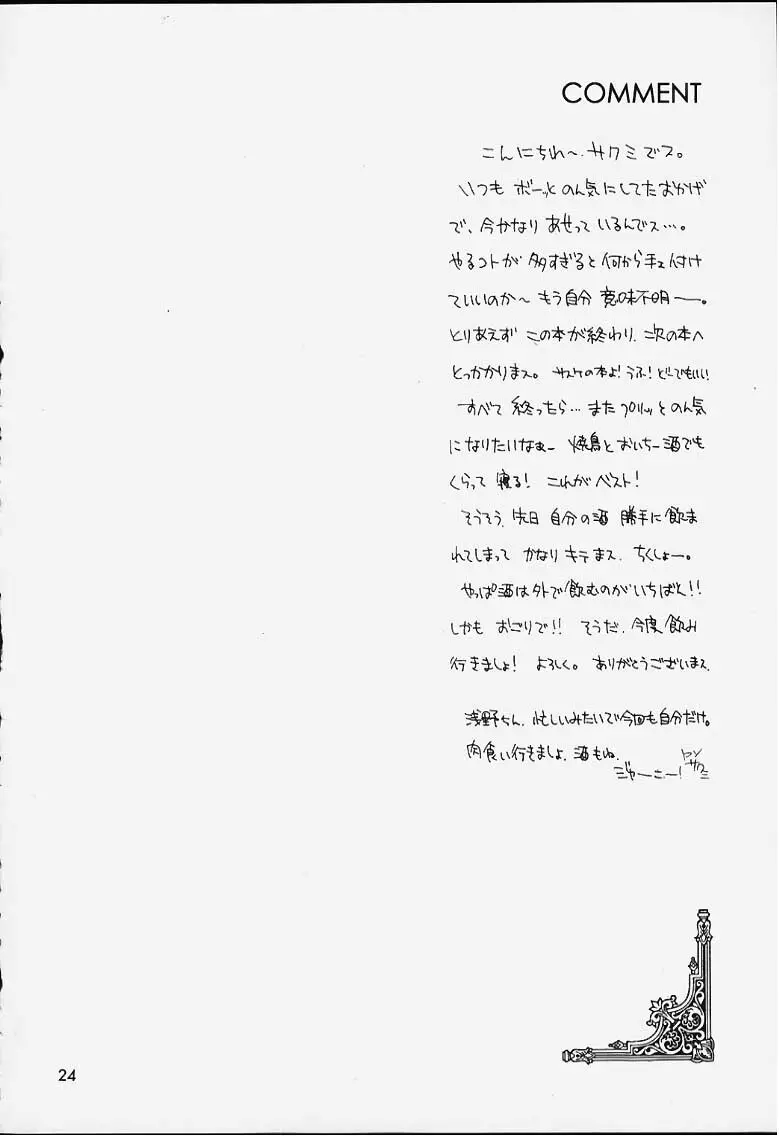 COMMENT
こんにちわ〜.サクミでス。
いつも ボーッと のん気にしてたおかげ
で、今かなり あせって いるんでス…。
やるコトが 多すぎると 何から手ェ付けて
ていいのか〜 もう自分 意味不明ー。
とりあえず この本が終わり、次の本へ
とっかかりまス。 サスケの本よ!うふ!どーでもいい
すべて 終ったら… また プリッ とのん気
になりたいなぁー 焼鳥と おいちー酒でも
くらって 寝る! これがベスト!
そうそう、先日 自分の酒 勝手に飲ま
れてしまって かなり キテまス. ちくしょー。
やっぱ酒は外で飲むのがいちばん!!
しかも おごりで!! そうだ、今度飲み
行きましょ! よろしく。 ありがとうございまス.
浅野ちん、忙しいみたいで今回も自分だけ。
肉食い行きましょ、酒もね.
ジャーこー!
サクミ
24